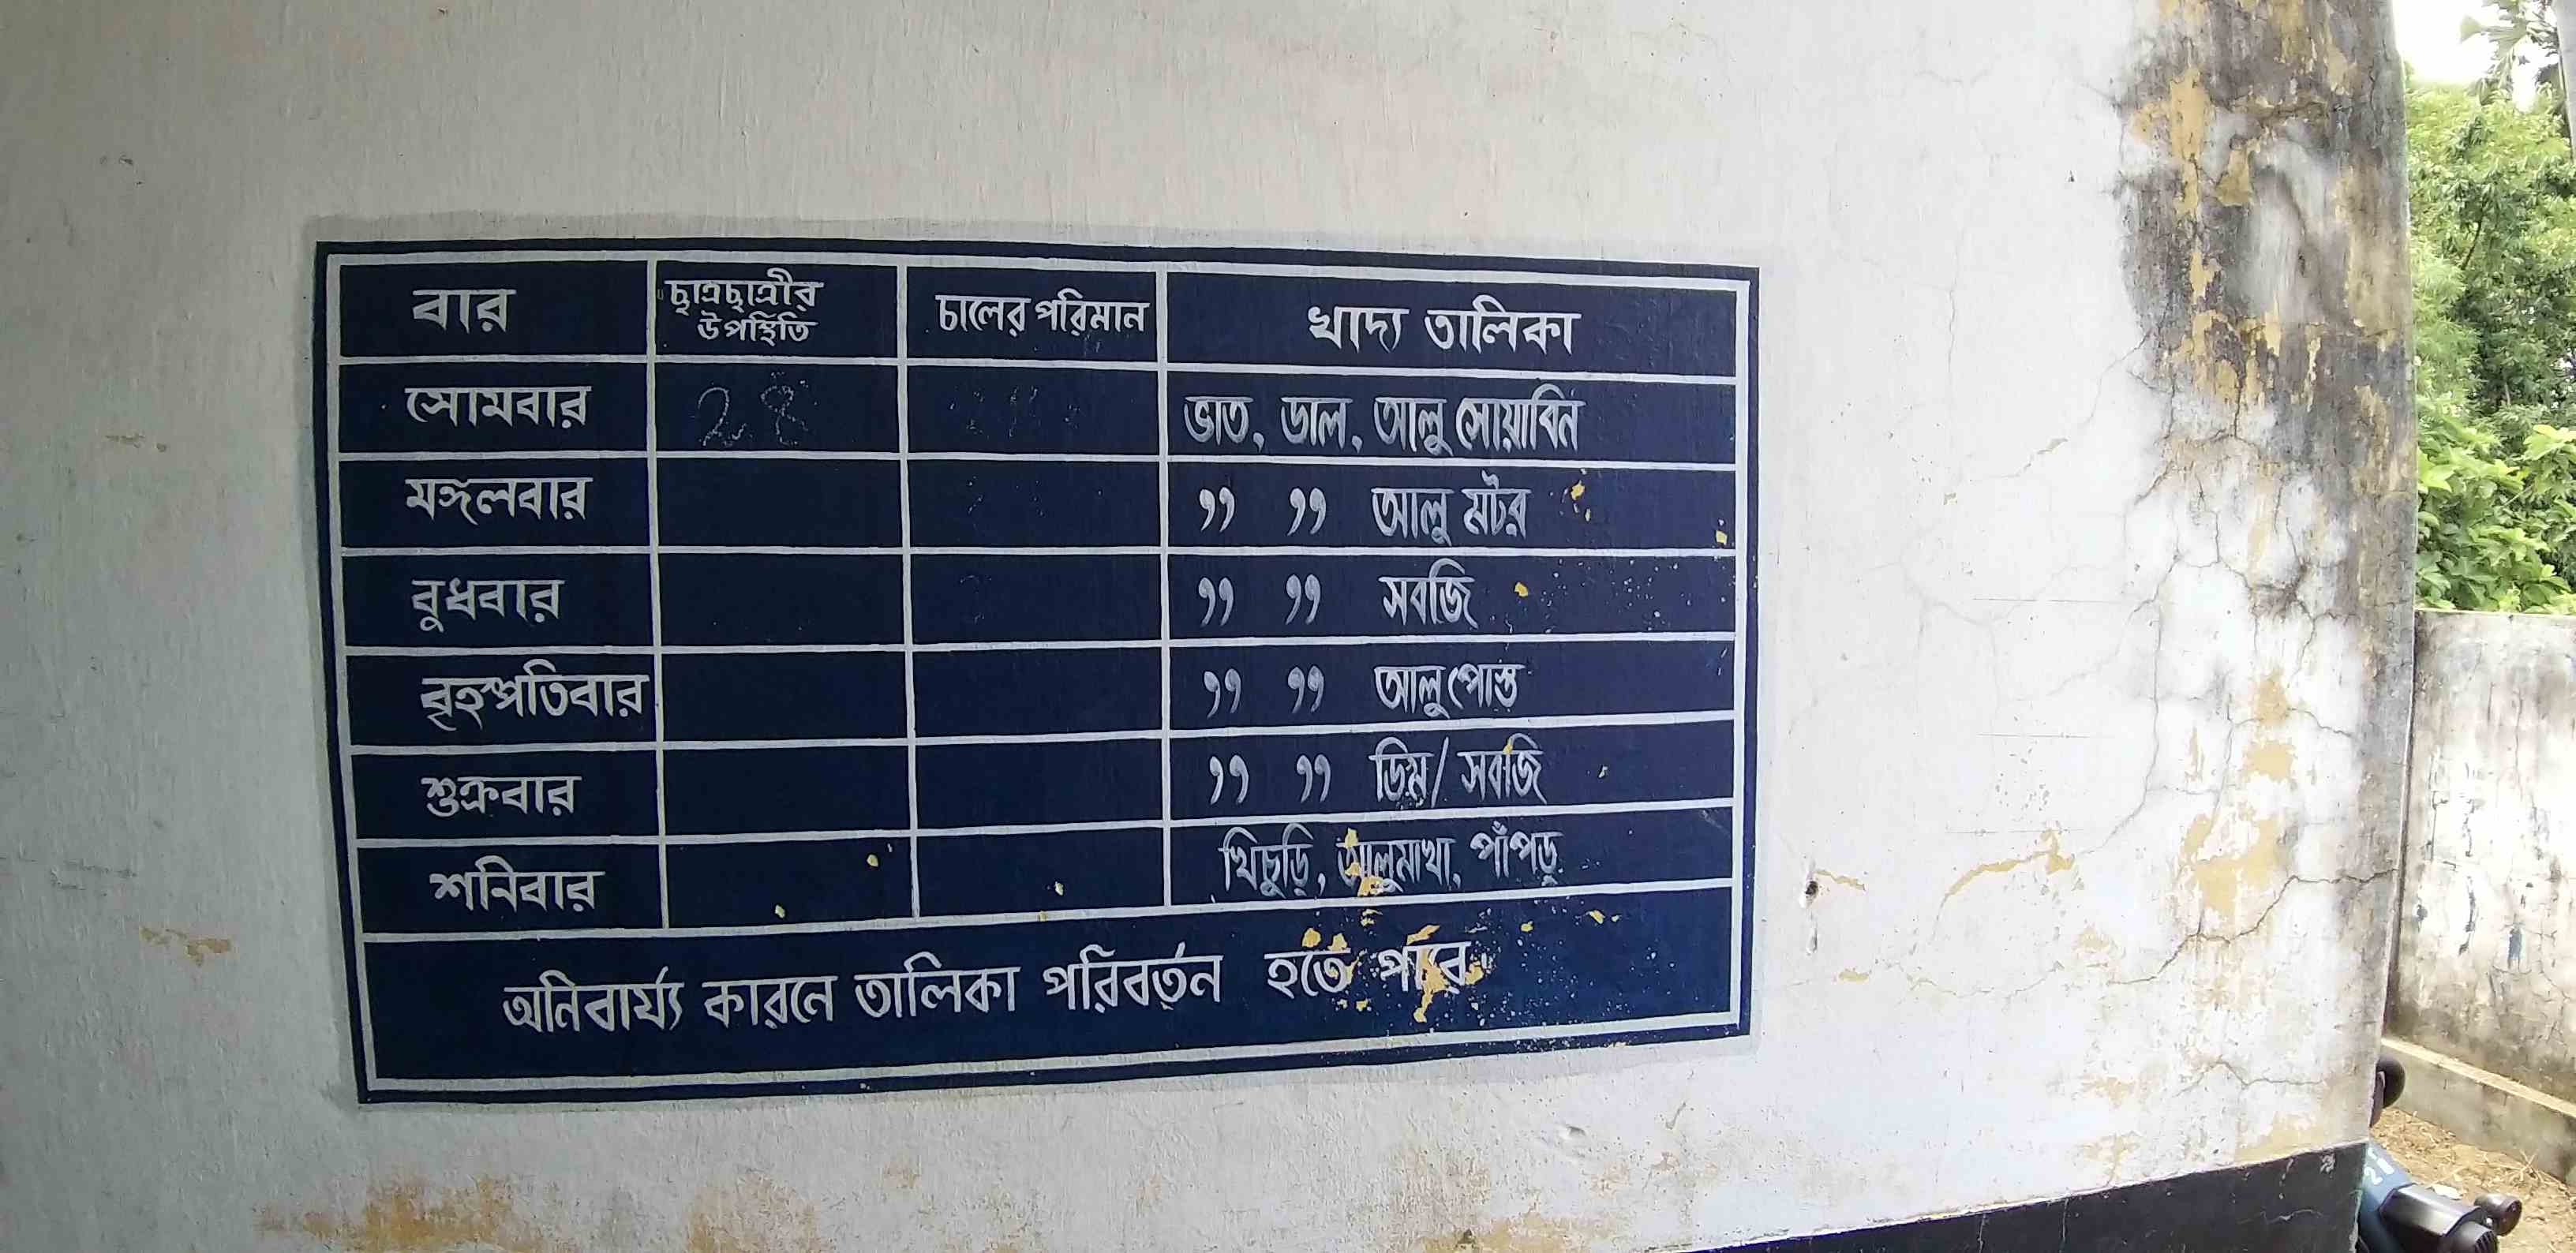 বার ছাত্রছাত্রীর উপস্থিতি চালের পরিমান খাদ্য তালিকা
সোমবার ভাত, ডাল, আলু সোয়াবিন
মঙ্গলবার ,, ,, আলু মটর
বুধবার ,, ,, সবজি
বৃহস্পতিবার ,, ,, আলু পোস্ত
শুক্রবার ,, ,, ডিম / সবজি
শনিবার খিচুড়ি, আলুমাখা, পাঁপড়
অনিবার্য্য কারনে তালিকা পরিবর্তন হতে পারে।